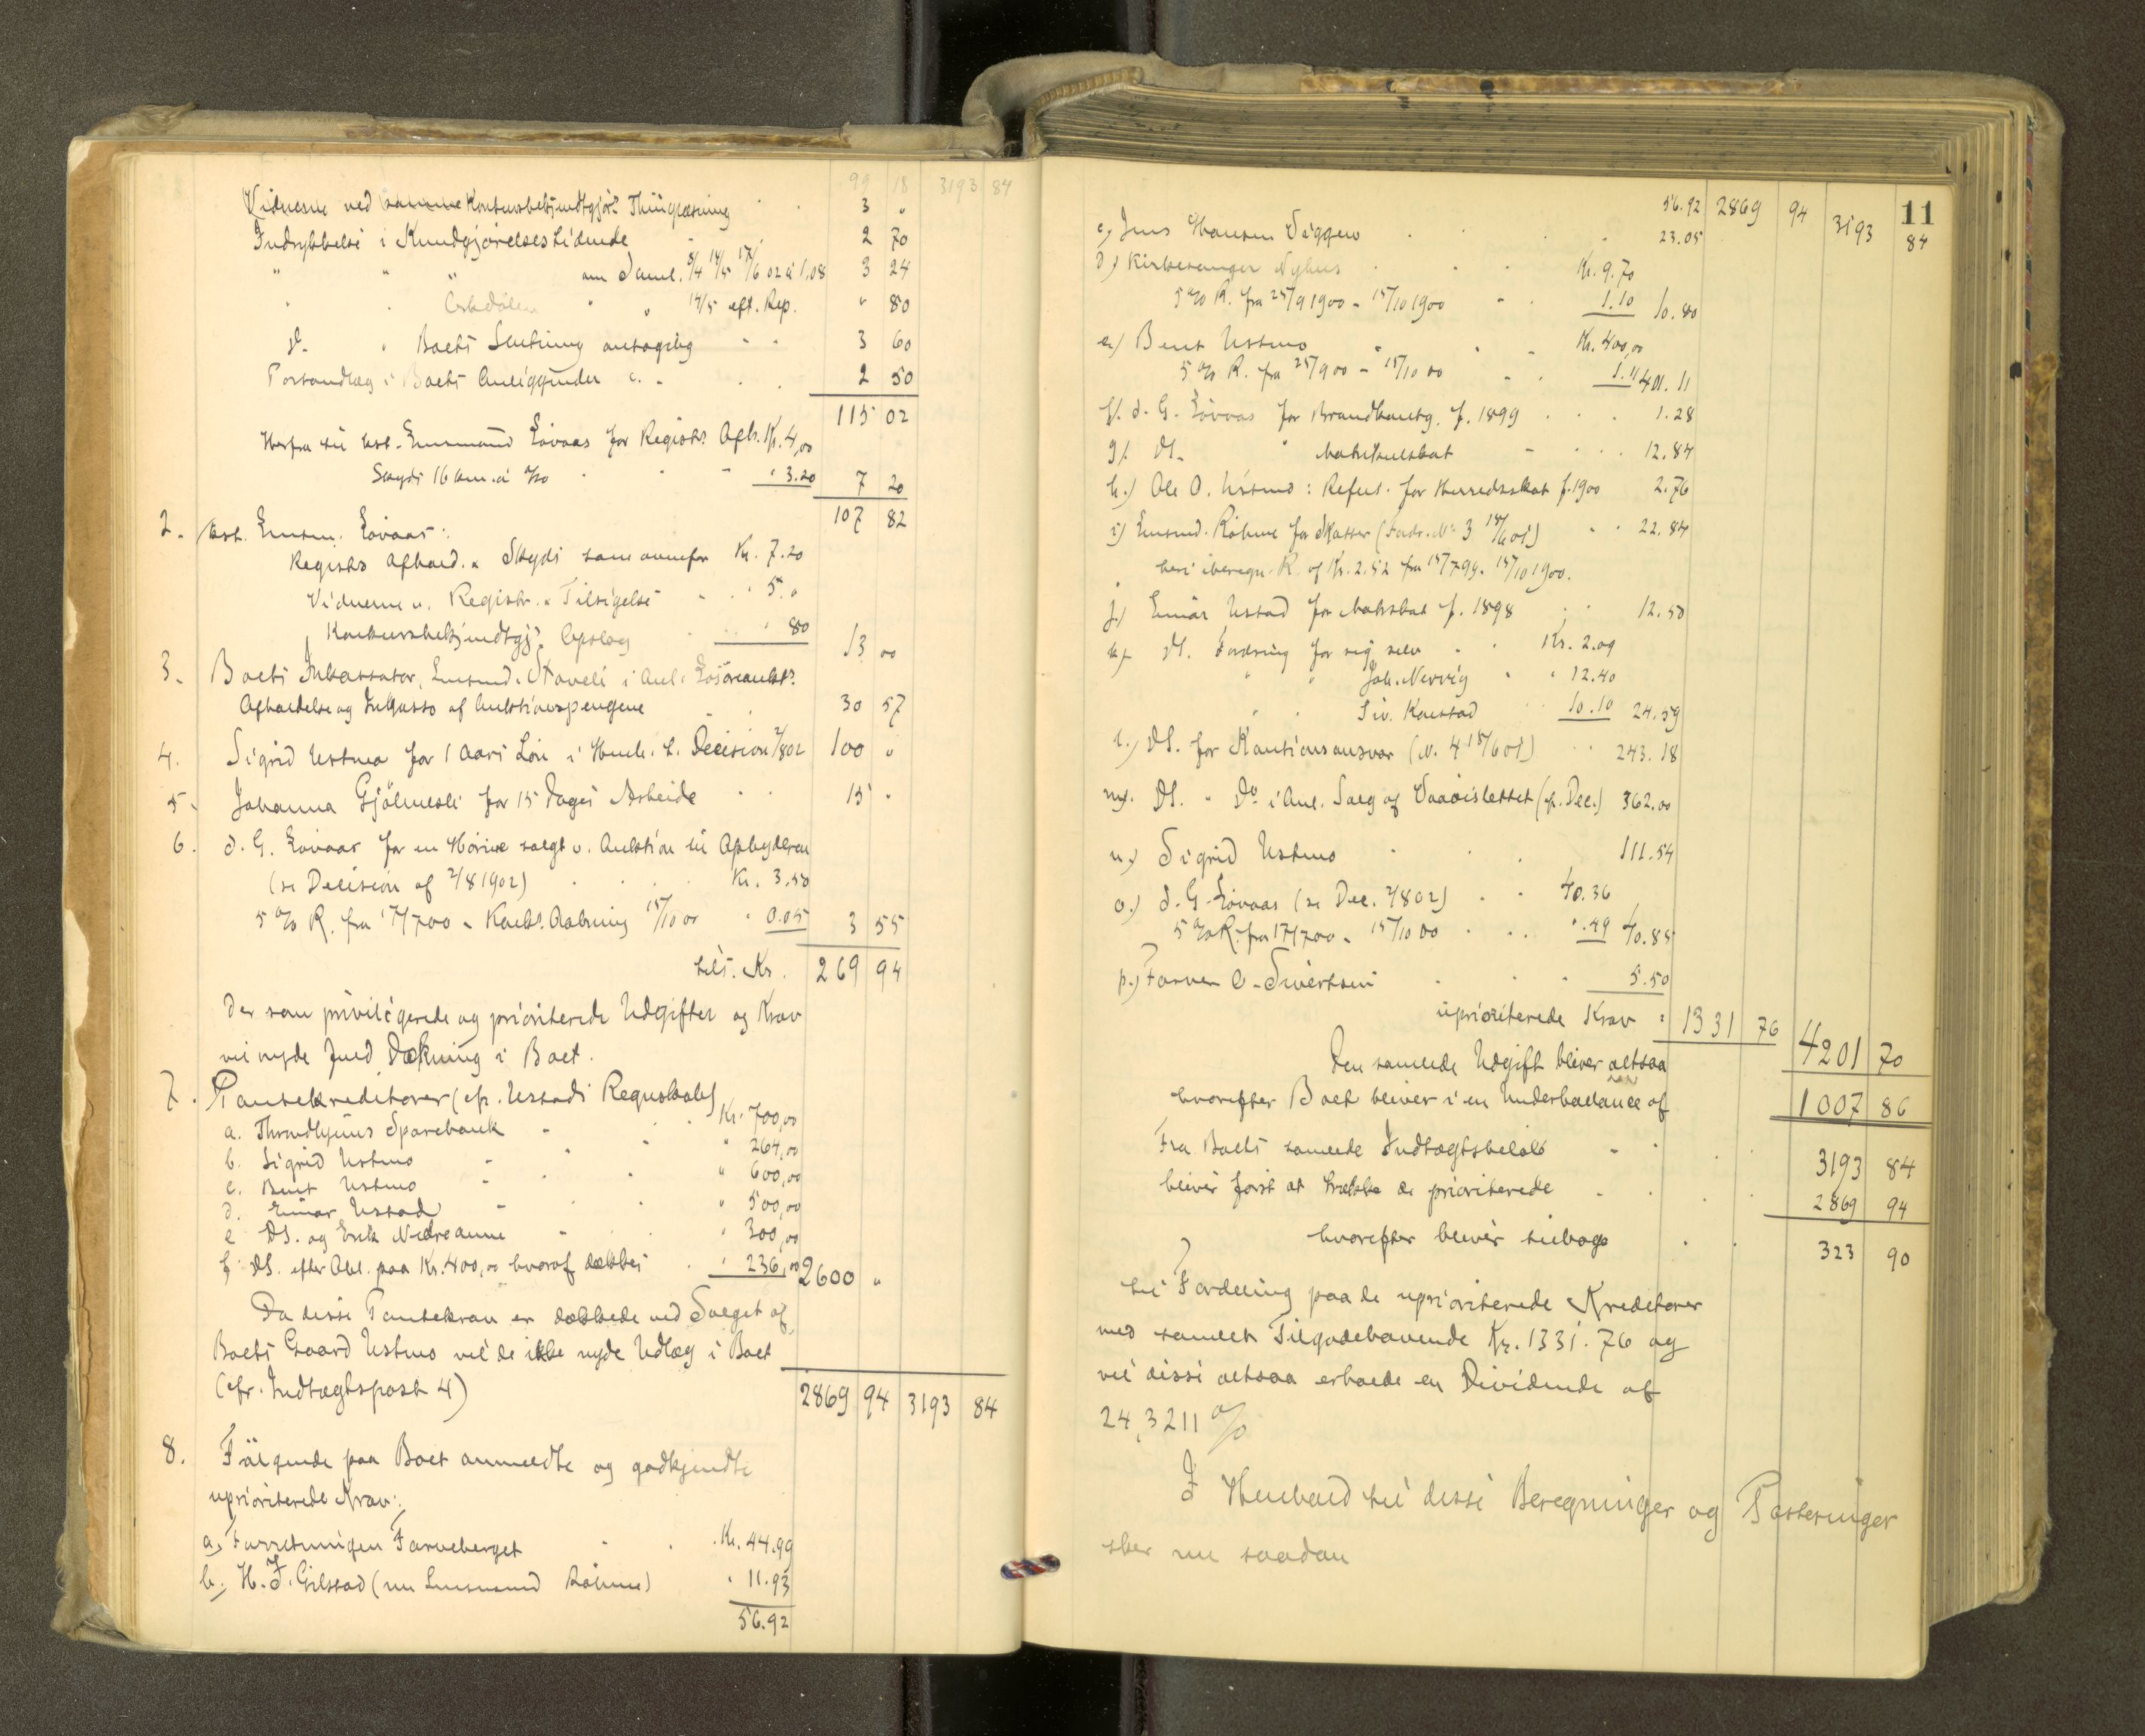 99 18 3193 84
Vidnerne ved samme Konkursbekjendtgjør. Thinglæsning 3 "
Indrykkelse i Kundgjørelsestidende 2 70
" " " om Saml. 3/4 14/5 17/6 02 à 1,08 3 24
" " " " 14/5 eft. Rep. " 80
d. " Boets Slutning antagelig 3 60
Portoudlæg i Boets Anliggender c. 2 50
115 02
Herfra til kst. Lensmand Løvaas for Registr. Afh. Kr. 4,00
Skyds 16 km. à 0/20 " 3.20 7 20
107 82
2. kst. Lensm. Løvaas:
Registrs Afhold. " Skyds som ovenfor Kr. 7.20
Vidnerne v. Registr. " Tilsigelse " 5. "
Konkursbekjendtgj. Opslag " 80 13 00
3. Boets Inkassator, Lensmd. Staveli i Anl. Løsøreaukt.
Afholdelse og Inkasso af Auktionspengene 30 57
4. Sigrid Ustmo for 1 Aars Løn i Henh. t. Decision 2/8 02 100 "
5. Johanna Gjølmesli for 15 Dages Arbeide 15 "
6. d. G. Løvaas for en Hovre solgt v. Auktion til Opbyderen
(se Decision af 2/8 1902) Kr. 3.50
5 % R. fra 17/7 00 - Konks. Aabning 15/10 00 " 0.05 3 55
tils. Kr. 269 94
der som priviligerede og prioriterede Udgifter og Krav
vil nyde fuld Dækning i Boet.
7. Pantekreditorer (cfr. Ustads Regnskab)
a. Throndhjems Sparebank Kr. 700,00
b. Sigrid Ustmo " 264,00
c. Bent Ustmo " 600,00
d. Einar Ustad " 500,00
e. DS. og Erik Nedreaune " 300,00
f. DS. efter Obl. paa Kr. 400,00 hvoraf dækkes " 236,00 2600 "
Da disse Pantekrav er dækkede ved Salget af
Boets Gaard Ustmo vil de ikke nyde Udlæg i Boet
(cfr. Indtægtspost 4) 2869 94 3193 84
8. Følgende paa Boet anmeldte og godkjendte
uprioriterede Krav:
a, Forretningen Farveberget Kr. 44.99
b, H. J. Gilstad (nu Lensmand Røhme) " 11.93
56.92
11
56.92 2869 94 3193 84
c, Jens Hansen Viggen 23.05
d, Kirkesanger Nyhus Kr. 9.70
5 % R. fra 25/9 1900 - 15/10 1900 1.10 10.80
e, Bent Ustmo Kr. 400,00
5 % R. fra 25/9 00 - 15/10 00 1.11 401.11
f. d. G. Løvaas for Brandkontg. f. 1899 1.28
g. DS. " Matrikulskat 12.84
h.) Ole O. Ustmo: Refus. for Herredsskat f. 1900 2.76
i) Lensmd. Røhme for Skatter (Fordr. No 3 18/6 01) 22.84
heri iberegn. R. af Kr. 2.52 fra 15/7 99 - 15/10 1900.
j.) Einar Ustad for Matrskat f. 1898 12.50
k. DS. Fordring for sig selv Kr. 2.09
" " Joh. Nervig " 12.40
" " Siv. Kaustad 10.10 24.59
l.) DS. for Kautionsansvar (N. 4 18/6 01) 243.18
m. DS. " Do i Anl. Salg af Vaaoislettet (cfr. Dec.) 362.00
n.) Sigrid Ustmo 111.54
o.) d. G. Løvaas (se Dec. 2/8 02) 40.36
5 % R. fra 17/7 00 - 15/10 00 ".49 40.85
p.) Farver O. Sivertsen 5.50
uprioriterede Krav: 1331 76
Den samlede Udgift bliver altsaa 4201 70
hvorefter Boet bliver i en Underballance af 1007 86
Fra Boets samlede Indtægtsbeløb 3193 84
bliver først at trække de prioriterede 2869 94
hvorefter bliver tilbage 323 90
til Fordeling paa de uprioriterede Kreditorer
med samlet Tilgodehavende Kr. 1331.76 og
vil disse altsaa erholde en Dividende af
24,3211 %
I Henhold til disse Beregninger og Posteringer
sker nu saadan